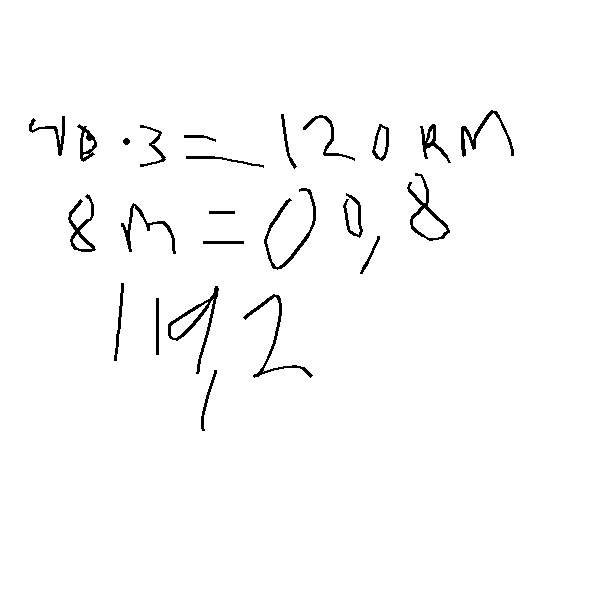 40 · 3 = 120 км
8 м = 00,8
119,2